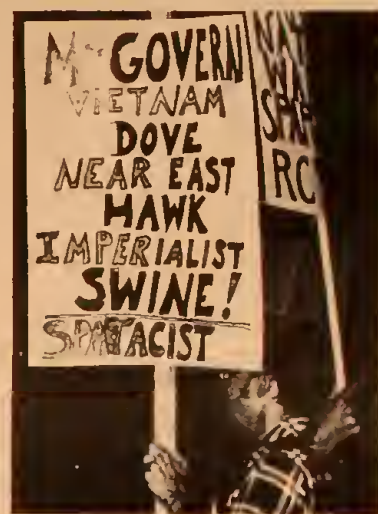 McGOVERN
VIETNAM
DOVE
NEAR EAST
HAWK
IMPERIALIST
SWINE!
SPARTACIST
RC